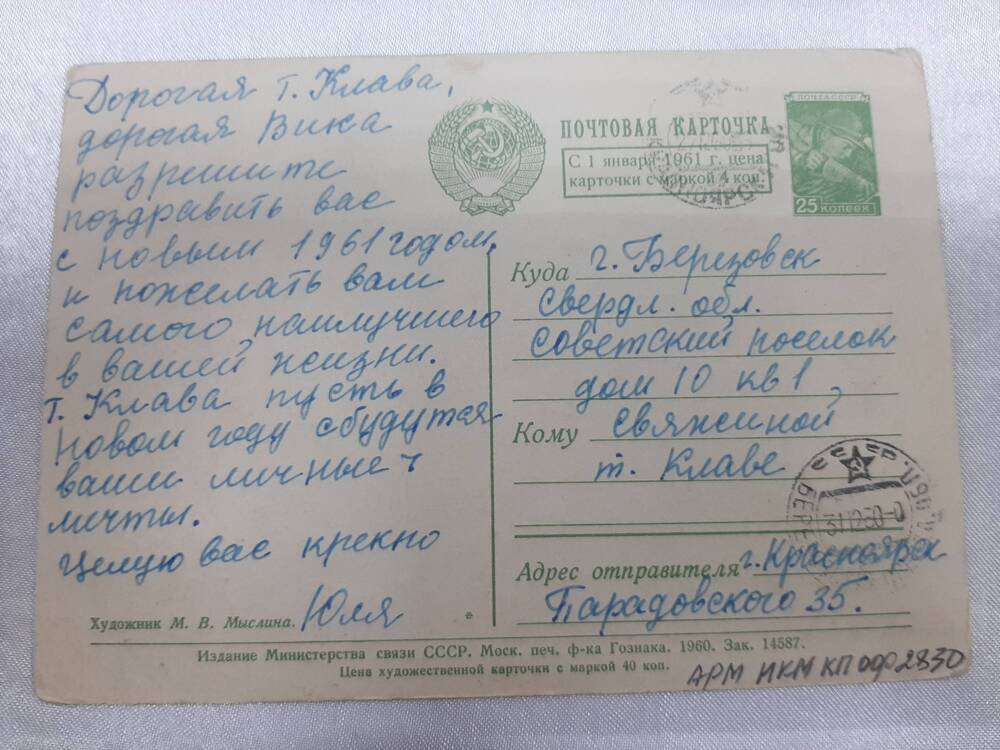 Дорогая т. Клава,
дорогая Вика
разрешите
поздравить вас
с новым 1961 годом,
и пожелать вам
самого наилучшего
в вашей жизни.
т. Клава пусть в
новом году сбудутся
ваши личные
мечты.
Целую вас крепко
Юля
Художник М. В. Мыслина.
ПОЧТОВАЯ КАРТОЧКА
С 1 января 1961 г. цена
карточки с маркой 4 коп.
ПОЧТА СССР
25 КОПЕЕК
Куда г. Березовск
свердл. обл.
Советский поселок
дом 10 кв 1
Кому Свяжиной
т. Клаве
31.12.60
Адрес отправителя г. Красноярск
Парадовского 35.
Издание Министерства связи СССР. Моск. печ. ф-ка Гознака. 1960. Зак. 14587.
Цена художественной карточки с маркой 40 коп.
АРМ ИКМ КП оф 2830